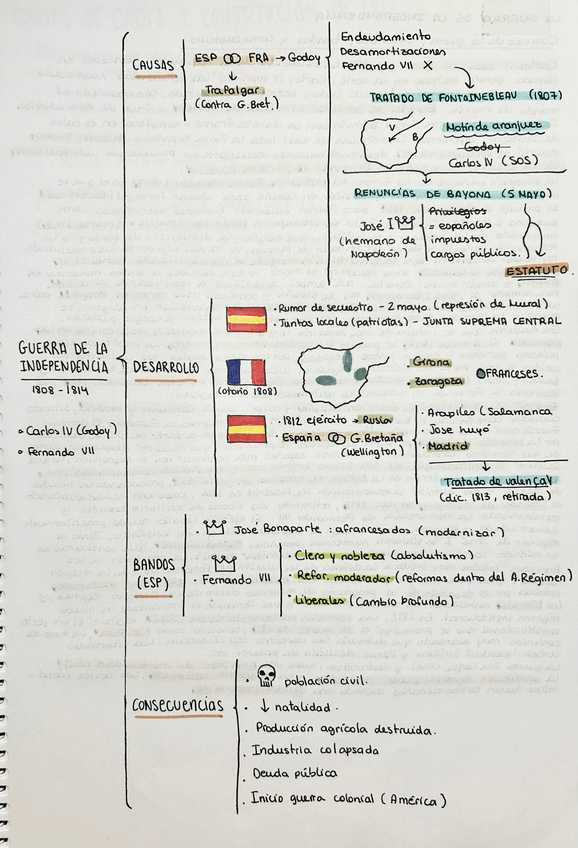 GUERRA DE LA
INDEPENDENCIA
1808 - 1814
Carlos IV (Godoy)
Fernando VII
CAUSAS
ESP FRA → Godoy
Trafalgar
(Contra G. Bret.)
Endeudamiento
Desamortizaciones
Fernando VII X
TRATADO DE FONTAINEBLEAU (1807)
V
B
Motín de aranjuez
Godoy
Carlos IV (SOS)
RENUNCIAS DE BAYONA (5 MAYO)
José I
(hermano de
Napoleón)
Privilegios
= españoles
impuestos
cargos públicos.
ESTATUTO.
DESARROLLO
· Rumor de secuestro - 2 mayo (represión de Murat)
· Juntas locales (patriotas) - JUNTA SUPREMA CENTRAL
(otoño 1808)
· Girona
· Zaragoza
FRANCESES.
· 1812 ejército → Rusia
· España G. Bretaña
(Wellington)
· Arapiles (Salamanca
· Jose huyó
· Madrid
Tratado de valençay
(dic. 1813, retirada)
BANDOS
(ESP)
· José Bonaparte : afrancesados (modernizar)
· Fernando VII
· Clero y nobleza (absolutismo)
· Refor. moderador (reformas dentro del A. Régimen)
· Liberales (Cambio profundo)
CONSECUENCIAS
· población civil.
· ↓ natalidad.
· Producción agrícola destruida.
· Industria colapsada
· Deuda pública
· Inicio guerra colonial (América)